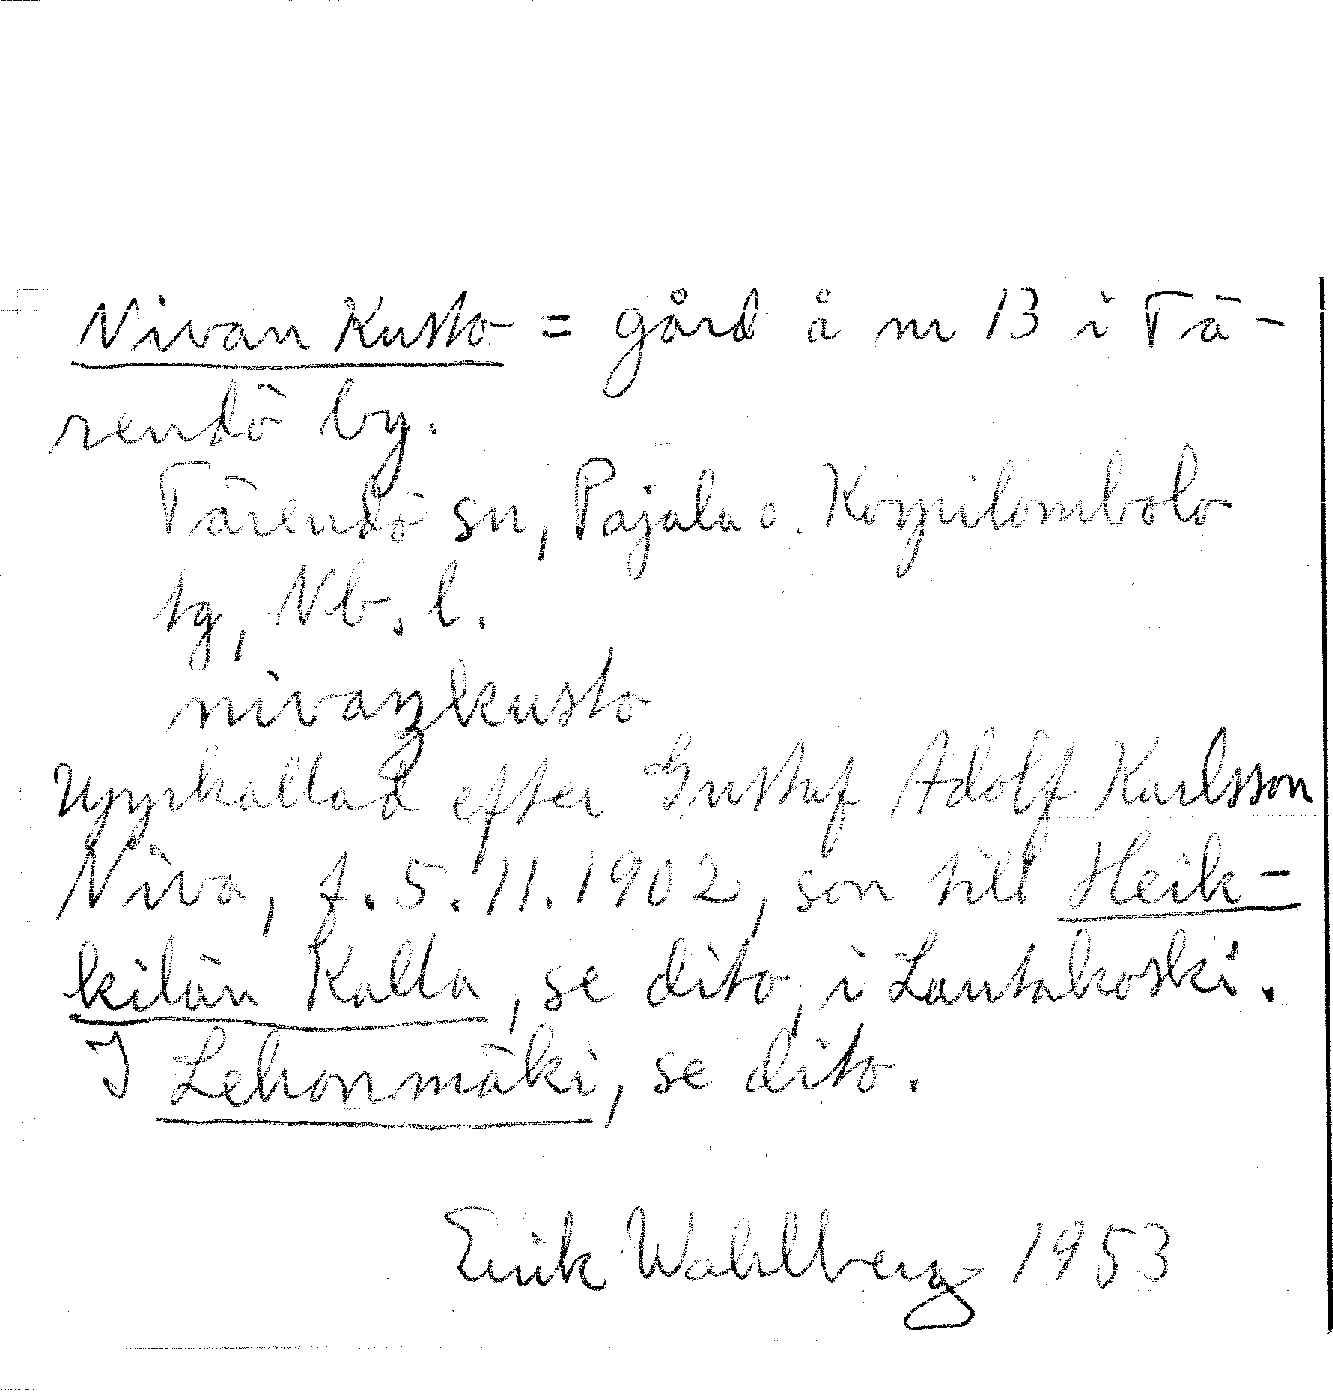 Nivan Kusto = gård å nr 13 i Tä-
rendö by.
Tärendö sn, Pajala o. Korpilombolo
tg, Nb. l.
nivaŋkusto
Uppkallad efter Gustaf Adolf Karlsson
Niva, f. 5.11.1902, son till Heik-
kilän Kalla, se dito, i Lautakoski.
I Lehonmäki, se dito.
Erik Wahlberg 1953